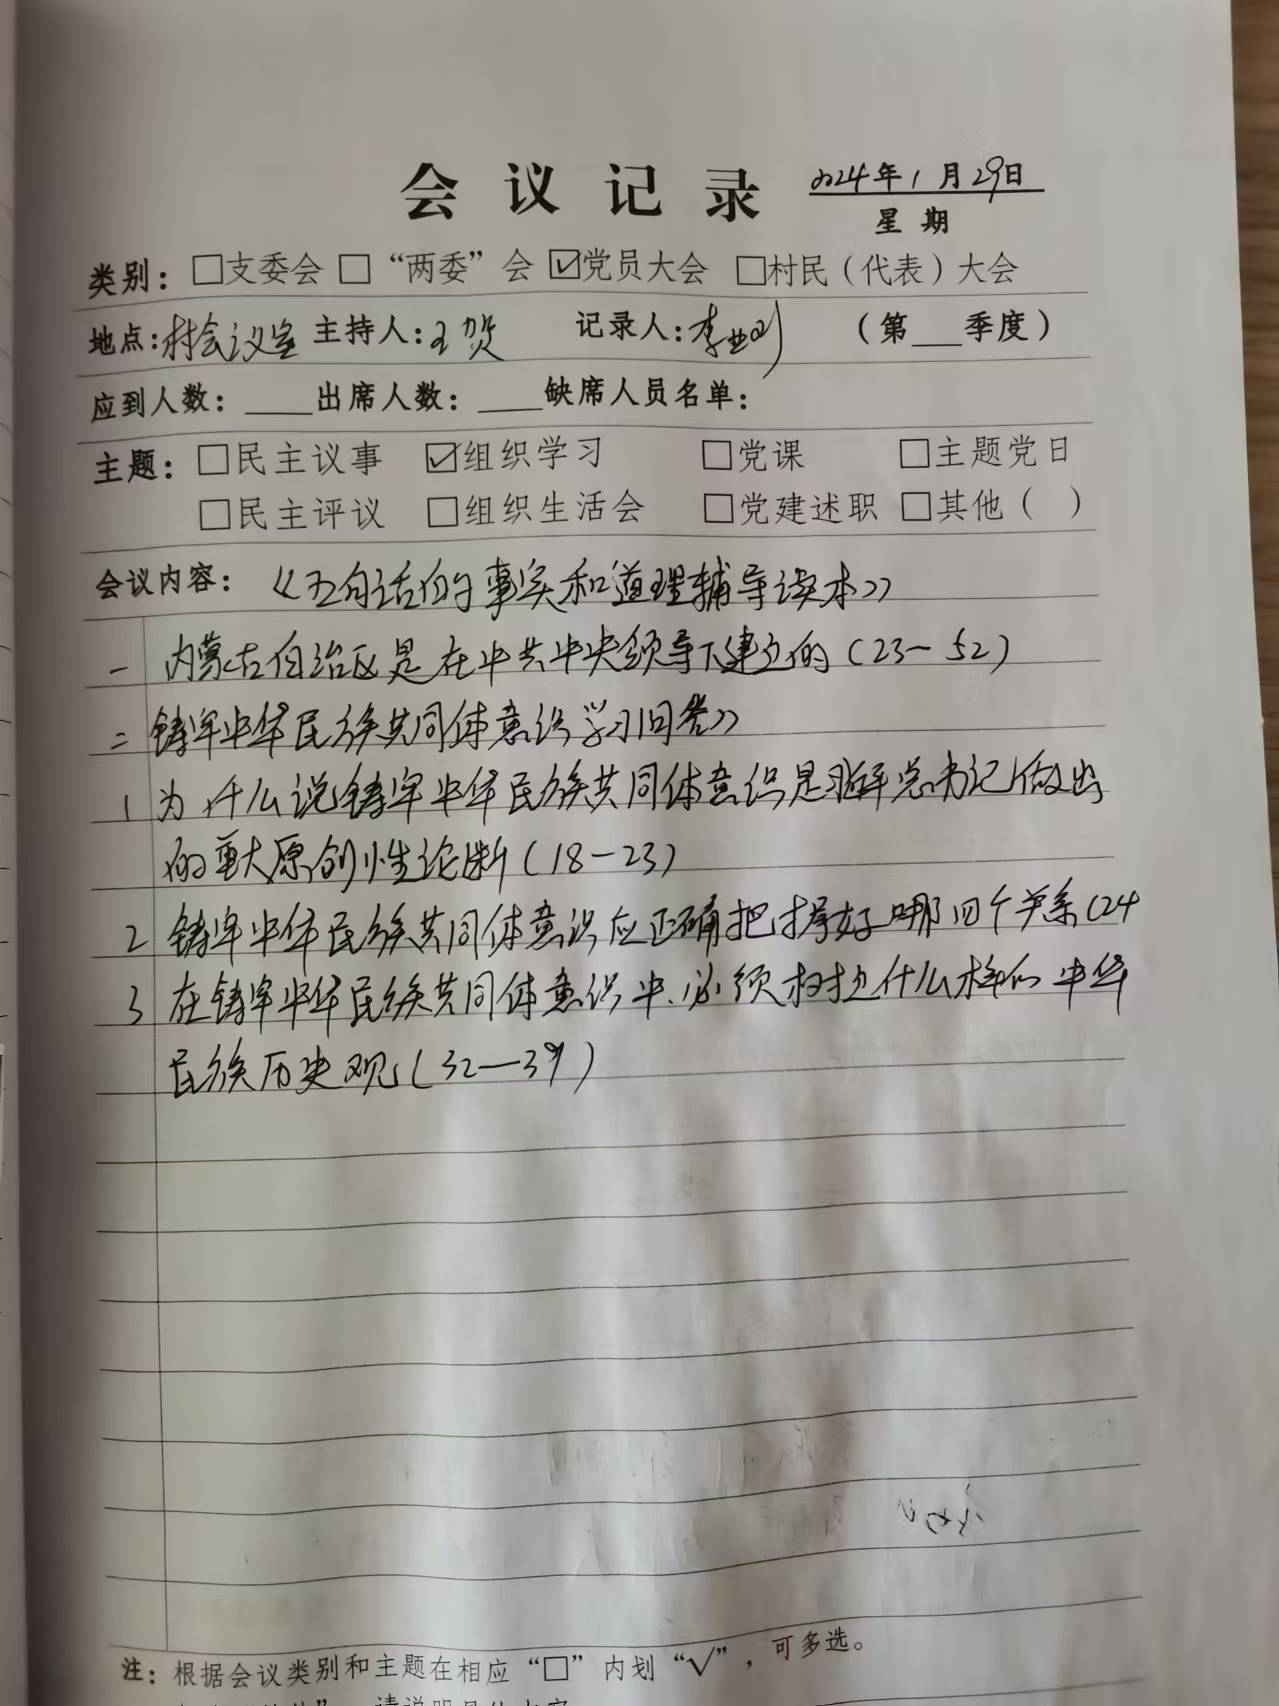 会议记录 2024年1月29日
星期
类别：□支委会 □“两委”会 ☑党员大会 □村民（代表）大会
地点:村会议室 主持人:王贺 记录人:李 （第___季度）
应到人数：____出席人数：____缺席人员名单：
主题：□民主议事 ☑组织学习 □党课 □主题党日
□民主评议 □组织生活会 □党建述职 □其他（ ）
会议内容：《五句话的事实和道理辅导读本》
一 内蒙古自治区是在中共中央领导下建立的（23－52）
二 铸牢中华民族共同体意识学习问答》
1 为什么说铸牢中华民族共同体意识是习近平总书记做出
的重大原创性论断（18－23）
2 铸牢中华民族共同体意识应正确把握好哪四个关系（24
3 在铸牢中华民族共同体意识中、必须树立什么样的中华
民族历史观（32—39）
注：根据会议类别和主题在相应“□”内划“√”，可多选。